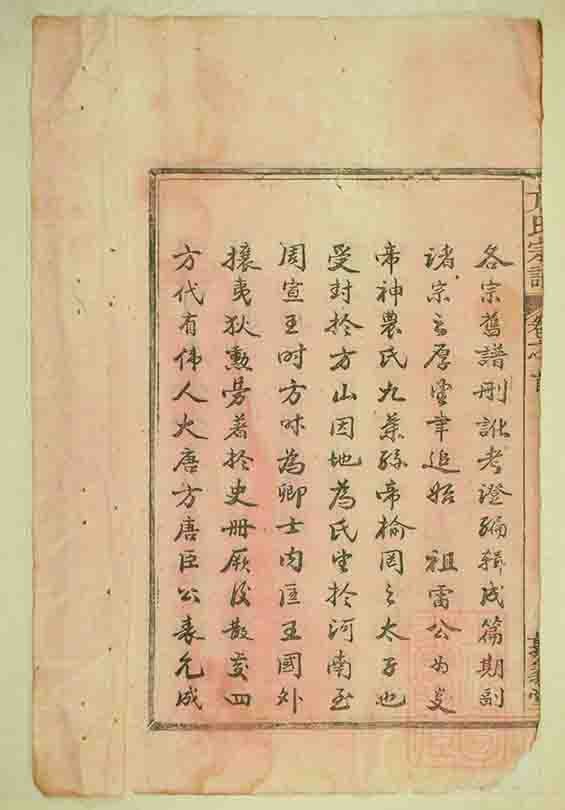 方氏宗譜 卷之首
各宗舊譜刑訛考證編輯成篇期副
諸宗之厚望聿追始 祖雷公為炎
帝神農氏九葉孫帝榆罔之太子也
受封於方山因地為氏望於河南至
周宣王时方叔為卿士內匡王國外
攘夷狄勳勞著於史冊厥後散處四
方代有伟人大唐方唐臣公表允成